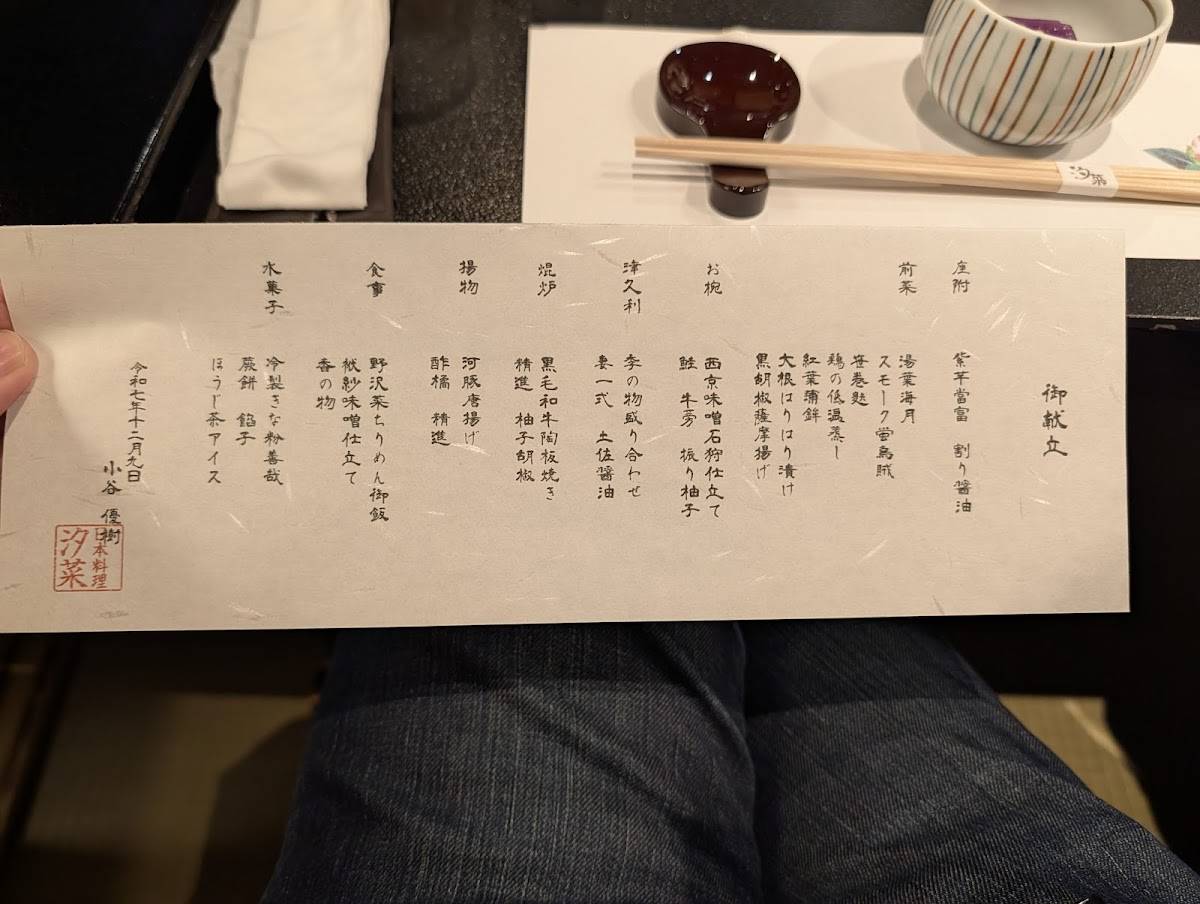 御献立
座附
紫芋豆富　割り醤油
前菜
湯葉海月
スモーク蛍烏賊
笹巻麩
鶏の低温蒸し
紅葉蒲鉾
大根はりはり漬け
黒胡椒薩摩揚げ
お椀
西京味噌石狩仕立て
鮭　牛蒡　振り柚子
津久利
季の物盛り合わせ
妻一式　土佐醤油
焜炉
黒毛和牛陶板焼き
精進　柚子胡椒
揚物
河豚唐揚げ
酢橘　精進
食事
野沢菜ちりめん御飯
袱紗味噌仕立て
香の物
水菓子
冷製きな粉善哉
蕨餅　餡子
ほうじ茶アイス
令和七年十二月九日
小谷　優樹
日本料理
汐菜
汐菜